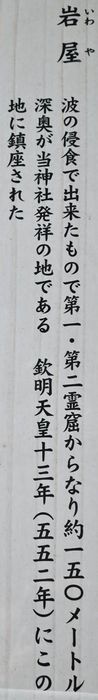 岩屋
いわや
波の侵食で出来たもので第一・第二霊窟からなり約一五〇メートル
深奥が当神社発祥の地である　欽明天皇十三年（五五二年）にこの
地に鎮座された